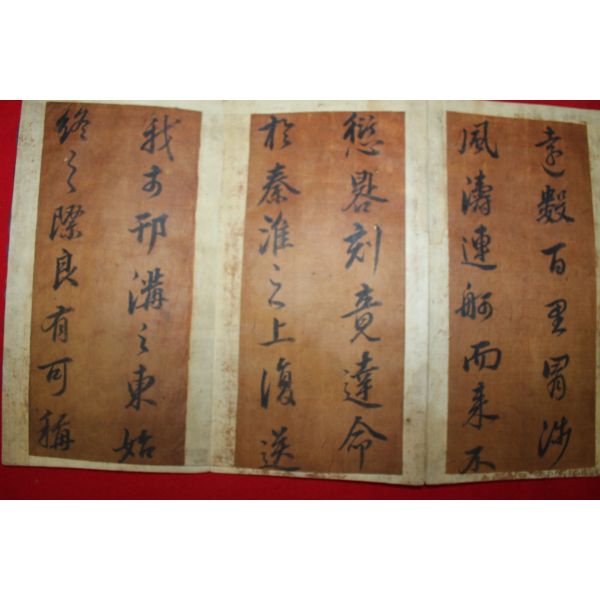 遠數百里冒涉
風濤連舸而來不
愆晷刻竟達命
於秦淮之上復送
我于邗溝之東始
終之際良有可稱